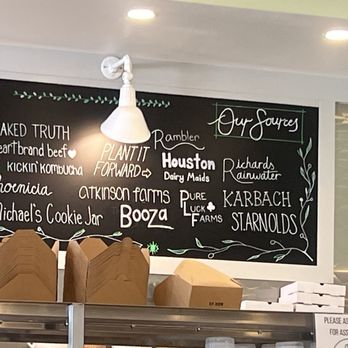 Our Sources
AKED TRUTH
eartbrand beef
KICKIN' KOMBUCHA
hoenicia
Michael's Cookie Jar
PLANT IT
FORWARD
atkinson farms
Booza
Rambler
Houston
Dairy Maids
PURE
LUCK
FARMS
Richards
Rainwater
KARBACH
STARNOLDS
PLEASE AS
FOR ASS